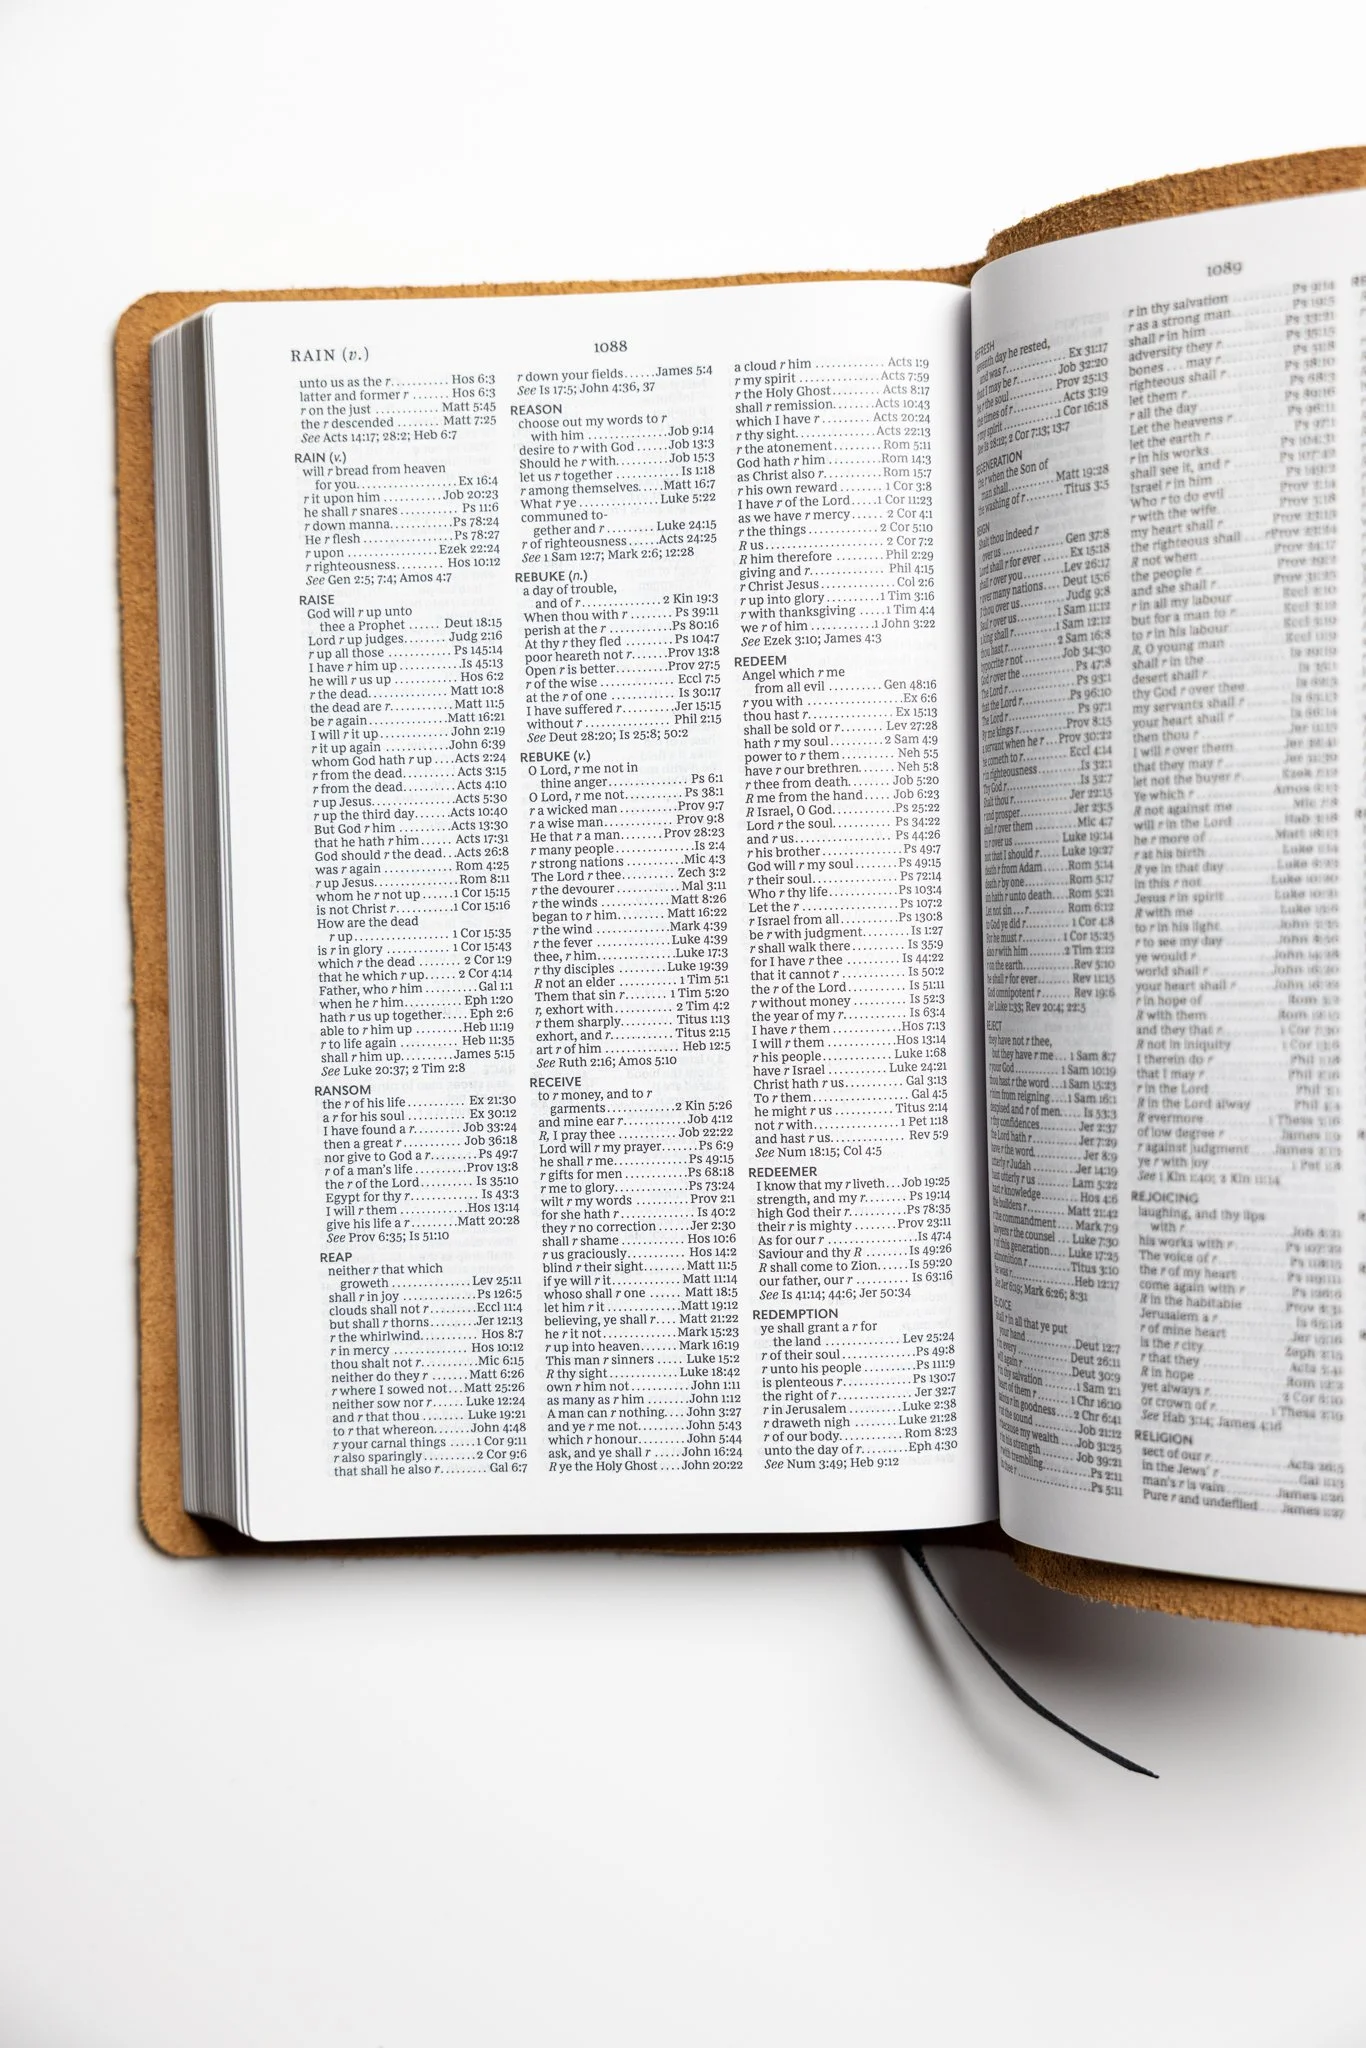 RAIN (v.)
1088
unto us as the r.......... Hos 6:3
latter and former r ........ Hos 6:3
r on the just ........ Matt 5:45
the r descended ...... Matt 7:25
See Acts 14:17; 28:2; Heb 6:7
RAIN (v.)
will r bread from heaven
for you................... Ex 16:4
r it upon him .......... Job 20:23
he shall r snares ........ Ps 11:6
r down manna.......... Ps 78:24
He r flesh ............. Ps 78:27
r upon .............. Ezek 22:24
r righteousness........ Hos 10:12
See Gen 2:5; 7:4; Amos 4:7
RAISE
God will r up unto
thee a Prophet ...... Deut 18:15
Lord r up judges..... Judg 2:16
r up all those ....... Ps 145:14
I have r him up ........ Is 45:13
he will r us up ........ Hos 6:2
r the dead............ Matt 10:8
the dead are r......... Matt 11:5
be r again ............ Matt 16:21
I will r it up ........... John 2:19
r it up again ......... John 6:39
whom God hath r up ... Acts 2:24
r from the dead....... Acts 3:15
r from the dead....... Acts 4:10
r up Jesus............. Acts 5:30
r up the third day.... Acts 10:40
But God r him ....... Acts 13:30
that he hath r him.... Acts 17:31
God should r the dead... Acts 26:8
was r again ........... Rom 4:25
r up Jesus............. Rom 8:11
whom he r not up ..... 1 Cor 15:15
is not Christ r......... 1 Cor 15:16
How are the dead
r up.................. 1 Cor 15:35
is r in glory ......... 1 Cor 15:43
which r the dead ....... 2 Cor 1:9
that he which r up..... 2 Cor 4:14
Father, who r him ......... Gal 1:1
when he r him......... Eph 1:20
hath r us up together.... Eph 2:6
able to r him up ....... Heb 11:19
r to life again ......... Heb 11:35
shall r him up........ James 5:15
See Luke 20:37; 2 Tim 2:8
RANSOM
the r of his life ......... Ex 21:30
a r for his soul ......... Ex 30:12
I have found a r....... Job 33:24
then a great r ......... Job 36:18
nor give to God a r....... Ps 49:7
r of a man's life ....... Prov 13:8
the r of the Lord ........ Is 35:10
Egypt for thy r........... Is 43:3
I will r them .......... Hos 13:14
give his life a r....... Matt 20:28
See Prov 6:35; Is 51:10
REAP
neither r that which
groweth ............. Lev 25:11
shall r in joy ........... Ps 126:5
clouds shall not r....... Eccl 11:4
but shall r thorns...... Jer 12:13
r the whirlwind......... Hos 8:7
r in mercy ........... Hos 10:12
thou shalt not r........ Mic 6:15
neither do they r ...... Matt 6:26
r where I sowed not... Matt 25:26
neither sow nor r ...... Luke 12:24
and r that thou ....... Luke 19:21
to r that whereon..... John 4:48
r your carnal things .... 1 Cor 9:11
r also sparingly......... 2 Cor 9:6
that shall he also r........ Gal 6:7
r down your fields...... James 5:4
See Is 17:5; John 4:36, 37
REASON
choose out my words to r
with him ............. Job 9:14
desire to r with God .... Job 13:3
Should he r with........ Job 15:3
let us r together ......... Is 1:18
r among themselves.... Matt 16:7
What r ye ............ Luke 5:22
communed to-
gether and r ....... Luke 24:15
r of righteousness ..... Acts 24:25
See 1 Sam 12:7; Mark 2:6; 12:28
REBUKE (n.)
a day of trouble,
and of r............. 2 Kin 19:3
When thou with r ...... Ps 39:11
perish at the r ......... Ps 80:16
At thy r they fled ....... Ps 104:7
poor heareth not r...... Prov 13:8
Open r is better........ Prov 27:5
r of the wise ........... Eccl 7:5
at the r of one ......... Is 30:17
I have suffered r....... Jer 15:15
without r ............. Phil 2:15
See Deut 28:20; Is 25:8; 50:2
REBUKE (v.)
O Lord, r me not in
thine anger............. Ps 6:1
O Lord, r me not........ Ps 38:1
r a wicked man ........ Prov 9:7
r a wise man........... Prov 9:8
He that r a man....... Prov 28:23
r many people ............ Is 2:4
r strong nations ......... Mic 4:3
The Lord r thee......... Zech 3:2
r the devourer .......... Mal 3:11
r the winds ........... Matt 8:26
began to r him....... Matt 16:22
r the wind............ Mark 4:39
r the fever ........... Luke 4:39
thee, r him............ Luke 17:3
r thy disciples ....... Luke 19:39
R not an elder ......... 1 Tim 5:1
Them that sin r....... 1 Tim 5:20
r, exhort with ......... 2 Tim 4:2
r them sharply........ Titus 1:13
exhort, and r.......... Titus 2:15
art r of him ............ Heb 12:5
See Ruth 2:16; Amos 5:10
RECEIVE
to r money, and to r
garments............ 2 Kin 5:26
and mine ear r ......... Job 4:12
R, I pray thee ........ Job 22:22
Lord will r my prayer...... Ps 6:9
he shall r me........... Ps 49:15
r gifts for men .......... Ps 68:18
r me to glory........... Ps 73:24
wilt r my words ........ Prov 2:1
for she hath r ........... Is 40:2
they r no correction ..... Jer 2:30
shall r shame .......... Hos 10:6
r us graciously......... Hos 14:2
blind r their sight...... Matt 11:5
if ye will r it......... Matt 11:14
whoso shall r one ..... Matt 18:5
let him r it .......... Matt 19:12
believing, ye shall r... Matt 21:22
he r it not........... Mark 15:23
r up into heaven...... Mark 16:19
This man r sinners .... Luke 15:2
R thy sight.......... Luke 18:42
own r him not ......... John 1:11
as many as r him ..... John 1:12
A man can r nothing.... John 3:27
and ye r me not........ John 5:43
which r honour........ John 5:44
ask, and ye shall r .... John 16:24
R ye the Holy Ghost .... John 20:22
a cloud r him .......... Acts 1:9
r my spirit ........... Acts 7:59
r the Holy Ghost...... Acts 8:17
shall r remission..... Acts 10:43
which I have r ....... Acts 20:24
r thy sight........... Acts 22:13
r the atonement ....... Rom 5:11
God hath r him ........ Rom 14:3
as Christ also r........ Rom 15:7
r his own reward ....... 1 Cor 3:8
I have r of the Lord .... 1 Cor 11:23
as we have r mercy...... 2 Cor 4:1
r the things .......... 2 Cor 5:10
R us................... 2 Cor 7:2
R him therefore ....... Phil 2:29
giving and r........... Phil 4:15
r Christ Jesus .......... Col 2:6
r up into glory ........ 1 Tim 3:16
r with thanksgiving .... 1 Tim 4:4
we r of him .......... 1 John 3:22
See Ezek 3:10; James 4:3
REDEEM
Angel which r me
from all evil ......... Gen 48:16
r you with .............. Ex 6:6
thou hast r............. Ex 15:13
shall be sold or r....... Lev 27:28
hath r my soul ........ 2 Sam 4:9
power to r them ........ Neh 5:5
have r our brethren...... Neh 5:8
r thee from death....... Job 5:20
R me from the hand..... Job 6:23
R Israel, O God......... Ps 25:22
Lord r the soul......... Ps 34:22
and r us ............... Ps 44:26
r his brother ........... Ps 49:7
God will r my soul ..... Ps 49:15
r their soul............ Ps 72:14
Who r thy life .......... Ps 103:4
Let the r .............. Ps 107:2
r Israel from all........ Ps 130:8
be r with judgment....... Is 1:27
r shall walk there ........ Is 35:9
for I have r thee ........ Is 44:22
that it cannot r ......... Is 50:2
the r of the Lord ........ Is 51:11
r without money ......... Is 52:3
the year of my r......... Is 63:4
I have r them........... Hos 7:13
I will r them .......... Hos 13:14
r his people........... Luke 1:68
have r Israel ........ Luke 24:21
Christ hath r us......... Gal 3:13
To r them .............. Gal 4:5
he might r us ......... Titus 2:14
not r with............. 1 Pet 1:18
and hast r us............ Rev 5:9
See Num 18:15; Col 4:5
REDEEMER
I know that my r liveth... Job 19:25
strength, and my r...... Ps 19:14
high God their r........ Ps 78:35
their r is mighty ...... Prov 23:11
As for our r ............. Is 47:4
Saviour and thy R ....... Is 49:26
R shall come to Zion..... Is 59:20
our father, our r ......... Is 63:16
See Is 41:14; 44:6; Jer 50:34
REDEMPTION
ye shall grant a r for
the land ............. Lev 25:24
r of their soul............ Ps 49:8
r unto his people ....... Ps 111:9
is plenteous r .......... Ps 130:7
the right of r ........... Jer 32:7
r in Jerusalem ........ Luke 2:38
r draweth nigh ....... Luke 21:28
r of our body.......... Rom 8:23
unto the day of r....... Eph 4:30
See Num 3:49; Heb 9:12
1089
REFRESH
day he rested,
and was r........... Ex 31:17
that I may be r........ Job 32:20
r the soul............ Prov 25:13
the times of r......... Acts 3:19
r my spirit .......... 1 Cor 16:18
2 Cor 7:13; 13:7
REGENERATION
r when the Son of
man shall....... Matt 19:28
the washing of r........ Titus 3:5
REIGN
Shalt thou indeed r
over us ............ Gen 37:8
Lord shall r for ever ...... Ex 15:18
shall r over you........ Lev 26:17
r over many nations.... Deut 15:6
r thou over us........ Judg 9:8
r over us......... 1 Sam 11:12
king shall r ........ 1 Sam 12:12
thou hast r......... 2 Sam 16:8
hypocrite r not ....... Job 34:30
God r over the ......... Ps 47:8
The Lord r............ Ps 93:1
that the Lord r......... Ps 96:10
The Lord r............ Ps 97:1
By me kings r ........ Prov 8:15
a servant when he r... Prov 30:22
he cometh to r......... Eccl 4:14
r in righteousness ....... Is 32:1
Thy God r............. Is 52:7
Shalt thou r.......... Jer 22:15
r and prosper ......... Jer 23:5
shall r over them ....... Mic 4:7
r over us ......... Luke 19:14
not that I should r.... Luke 19:27
death r from Adam.... Rom 5:14
death r by one........ Rom 5:17
sin hath r unto death.... Rom 5:21
Let not sin ... r ....... Rom 6:12
to God ye did r ........ 1 Cor 4:8
For he must r ........ 1 Cor 15:25
also r with him ....... 2 Tim 2:12
r on the earth.......... Rev 5:10
he shall r for ever....... Rev 11:15
God omnipotent r....... Rev 19:6
See Luke 1:33; Rev 20:4; 22:5
REJECT
they have not r thee,
but they have r me... 1 Sam 8:7
r your God ......... 1 Sam 10:19
thou hast r the word ... 1 Sam 15:23
r him from reigning.... 1 Sam 16:1
despised and r of men..... Is 53:3
r thy confidences ....... Jer 2:37
the Lord hath r ......... Jer 7:29
have r the word......... Jer 8:9
utterly r Judah ........ Jer 14:19
hast utterly r us ....... Lam 5:22
hast r knowledge ....... Hos 4:6
the builders r........ Matt 21:42
r the commandment .... Mark 7:9
lawyers r the counsel ... Luke 7:30
r of this generation.... Luke 17:25
admonition r ......... Titus 3:10
he was r............. Heb 12:17
See Jer 6:19; Mark 6:26; 8:31
REJOICE
shall r in all that ye put
your hand ......... Deut 12:7
r in every ......... Deut 26:11
will again r ......... Deut 30:9
r in thy salvation ...... 1 Sam 2:1
heart of them r ..... 1 Chr 16:10
r in goodness ...... 2 Chr 6:41
r at the sound ........ Job 21:12
because my wealth .... Job 31:25
r in his strength ...... Job 39:21
r with trembling....... Ps 2:11
.......... Ps 5:11
r in thy salvation ......... Ps 9:14
r as a strong man........ Ps 19:5
shall r in him .......... Ps 33:21
adversity they r......... Ps 35:15
bones ... may r......... Ps 51:8
righteous shall r........ Ps 58:10
let them r ............. Ps 68:3
r all the day ........... Ps 89:16
Let the heavens r....... Ps 96:11
let the earth r........... Ps 97:1
r in his works......... Ps 104:31
shall see it, and r ...... Ps 107:42
Israel r in him ......... Ps 149:2
Who r to do evil ....... Prov 2:14
r with the wife......... Prov 5:18
my heart shall r....... Prov 23:15
the righteous shall
R not when.......... Prov 24:17
the people r .......... Prov 29:2
and she shall r ....... Prov 31:25
r in all my labour...... Eccl 2:10
but for a man to r...... Eccl 3:22
to r in his labour....... Eccl 5:19
R, O young man ....... Eccl 11:9
shall r in the ........... Is 29:19
desert shall r............ Is 35:1
thy God r over thee....... Is 62:5
my servants shall r....... Is 65:13
your heart shall r........ Is 66:14
then thou r ............ Jer 11:15
I will r over them ...... Jer 32:41
that they may r......... Jer 51:39
let not the buyer r ..... Ezek 7:12
Ye which r ............ Amos 6:13
R not against me ....... Mic 7:8
will r in the Lord ....... Hab 3:18
he r more of ......... Matt 18:13
r at his birth.......... Luke 1:14
R ye in that day ....... Luke 6:23
in this r not......... Luke 10:20
Jesus r in spirit ...... Luke 10:21
R with me ........... Luke 15:6
r to see my day........ John 8:56
ye would r .......... John 14:28
world shall r......... John 16:20
your heart shall r..... John 16:22
r in hope of ........... Rom 5:2
R with them ......... Rom 12:15
and they that r........ 1 Cor 7:30
R not in iniquity ...... 1 Cor 13:6
I therein do r ......... Phil 1:18
that I may r.......... Phil 2:16
r in the Lord .......... Phil 3:1
R in the Lord alway ..... Phil 4:4
R evermore.......... 1 Thess 5:16
of low degree r ....... James 1:9
r against judgment .... James 2:13
ye r with joy .......... 1 Pet 1:8
See 1 Kin 1:40; 2 Kin 11:14
REJOICING
laughing, and thy lips
with r............... Job 8:21
his works with r ....... Ps 107:22
The voice of r.......... Ps 118:15
the r of my heart ....... Ps 119:111
come again with r....... Ps 126:6
R in the habitable ...... Prov 8:31
Jerusalem a r........... Is 65:18
r of mine heart ........ Jer 15:16
is the r city........... Zeph 2:15
r that they ............ Acts 5:41
R in hope ............ Rom 12:12
yet always r .......... 2 Cor 6:10
or crown of r......... 1 Thess 2:19
See Hab 3:14; James 4:16
RELIGION
sect of our r........... Acts 26:5
in the Jews' r.......... Gal 1:13
man's r is vain........ James 1:26
Pure r and undefiled.... James 1:27